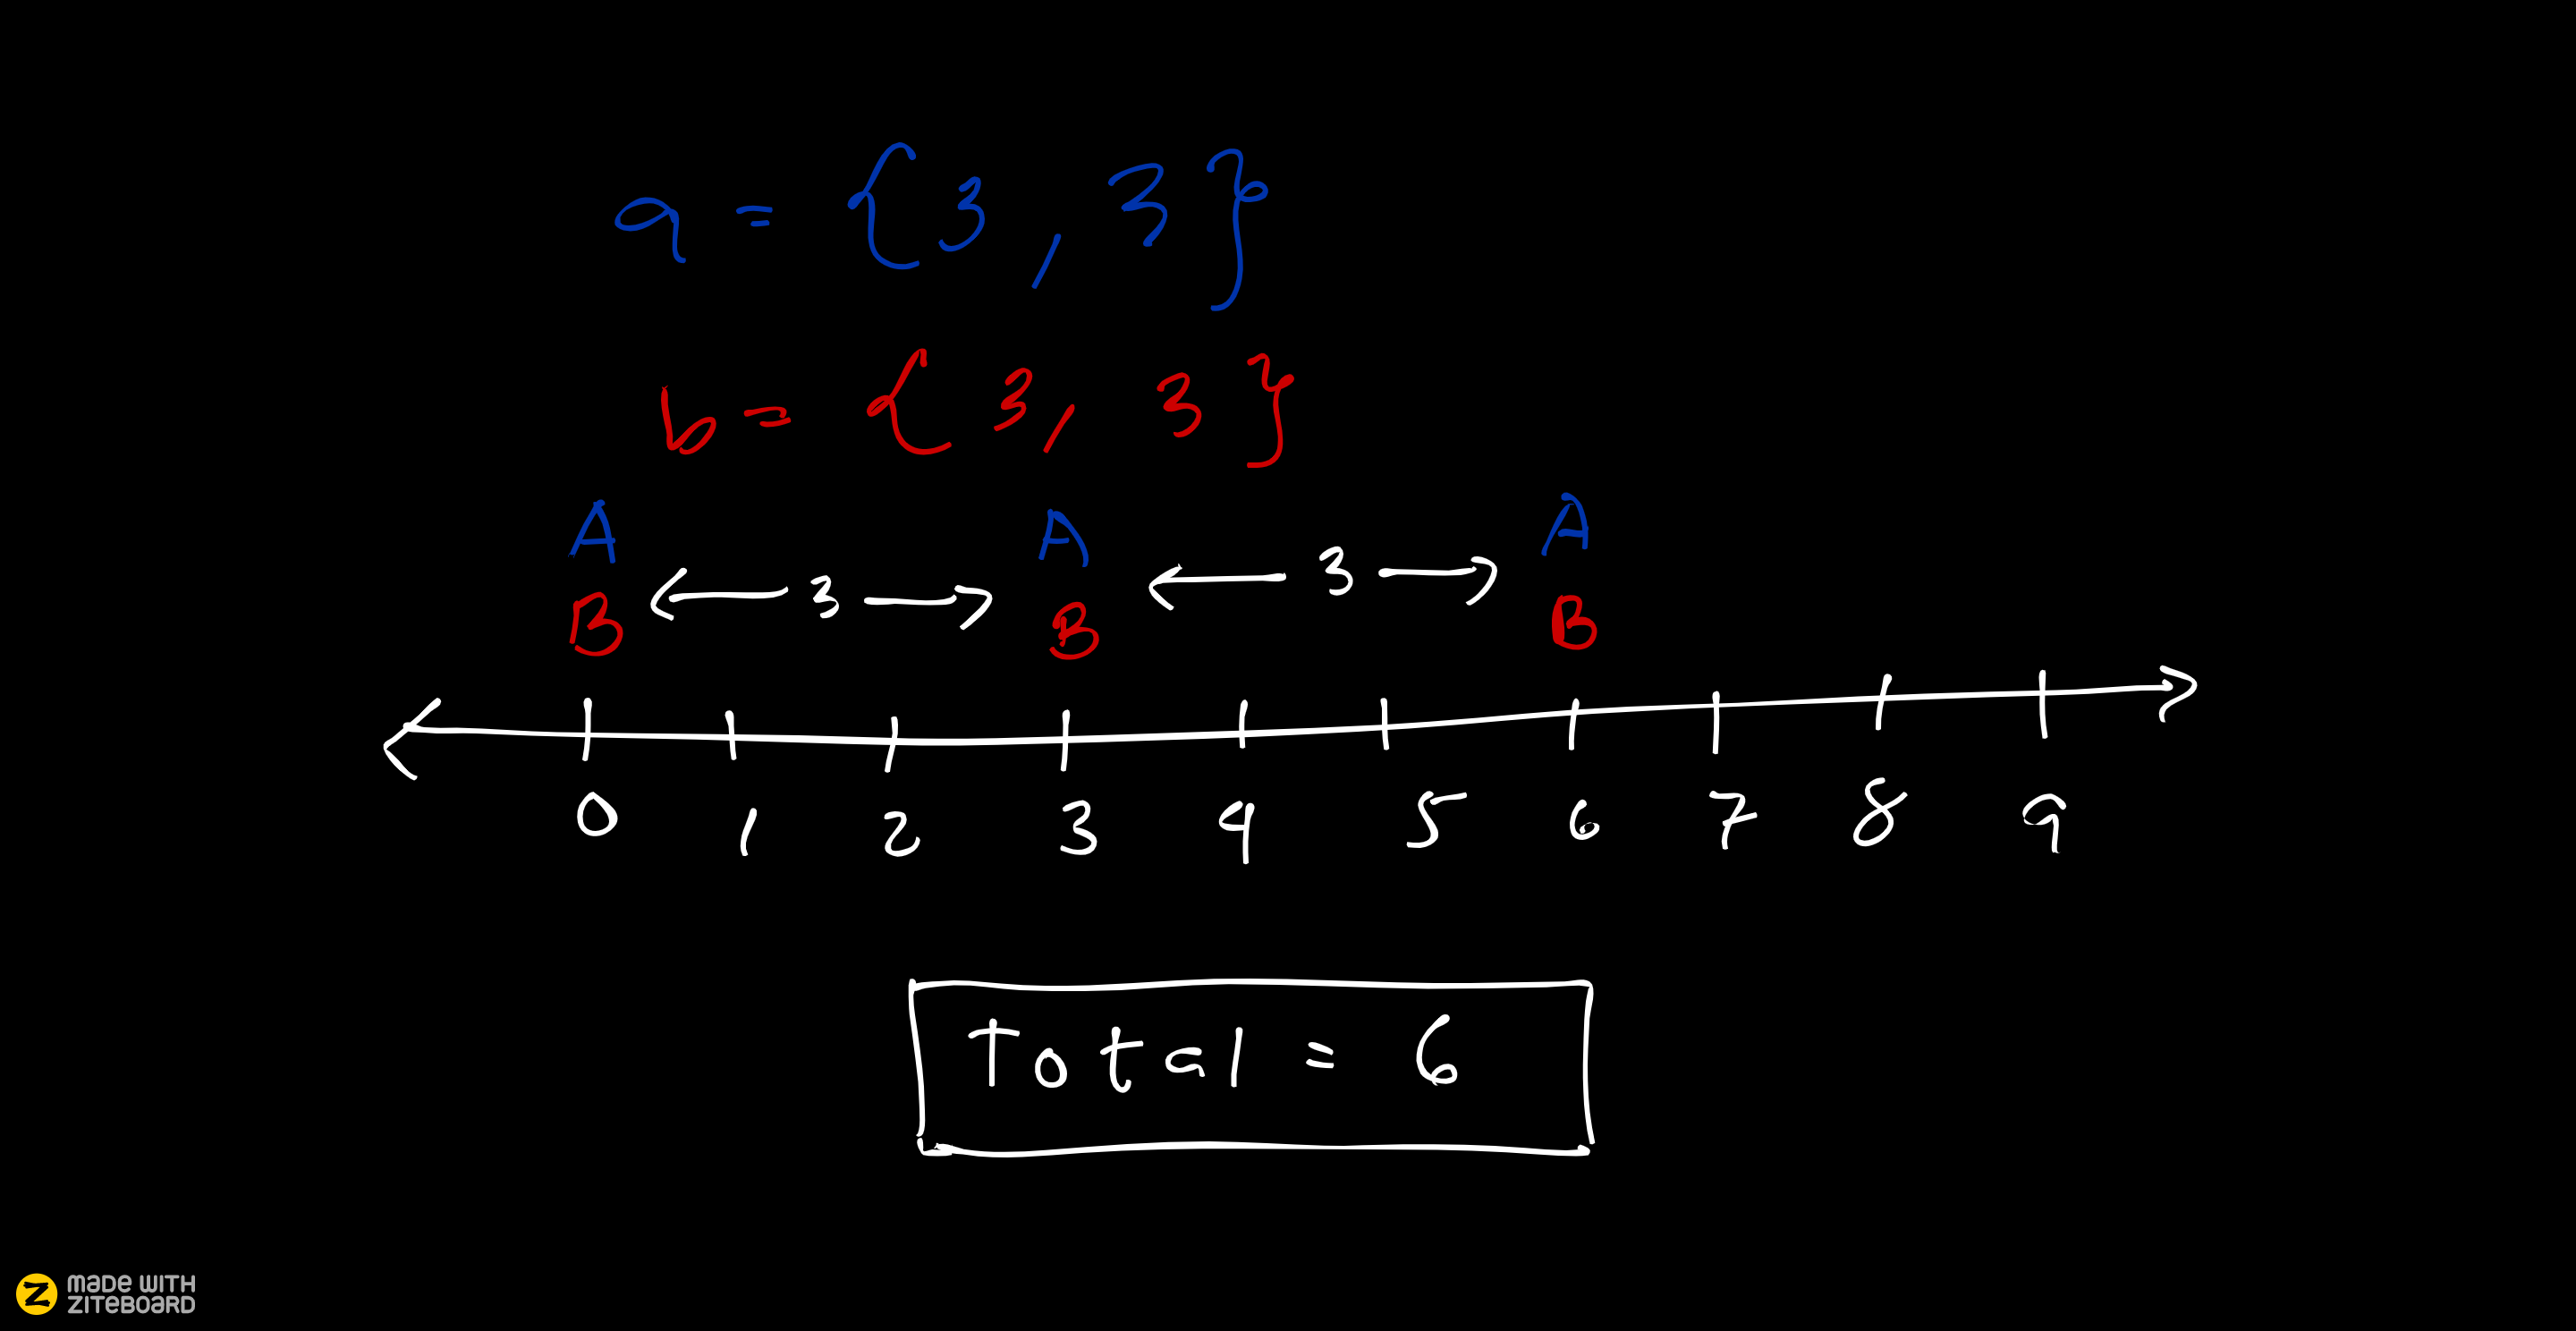 a = {3, 3}
b = {3, 3}
A A A
← 3 → ← 3 →
B B B
0 1 2 3 4 5 6 7 8 9
Total = 6
MADE WITH
ZITEBOARD